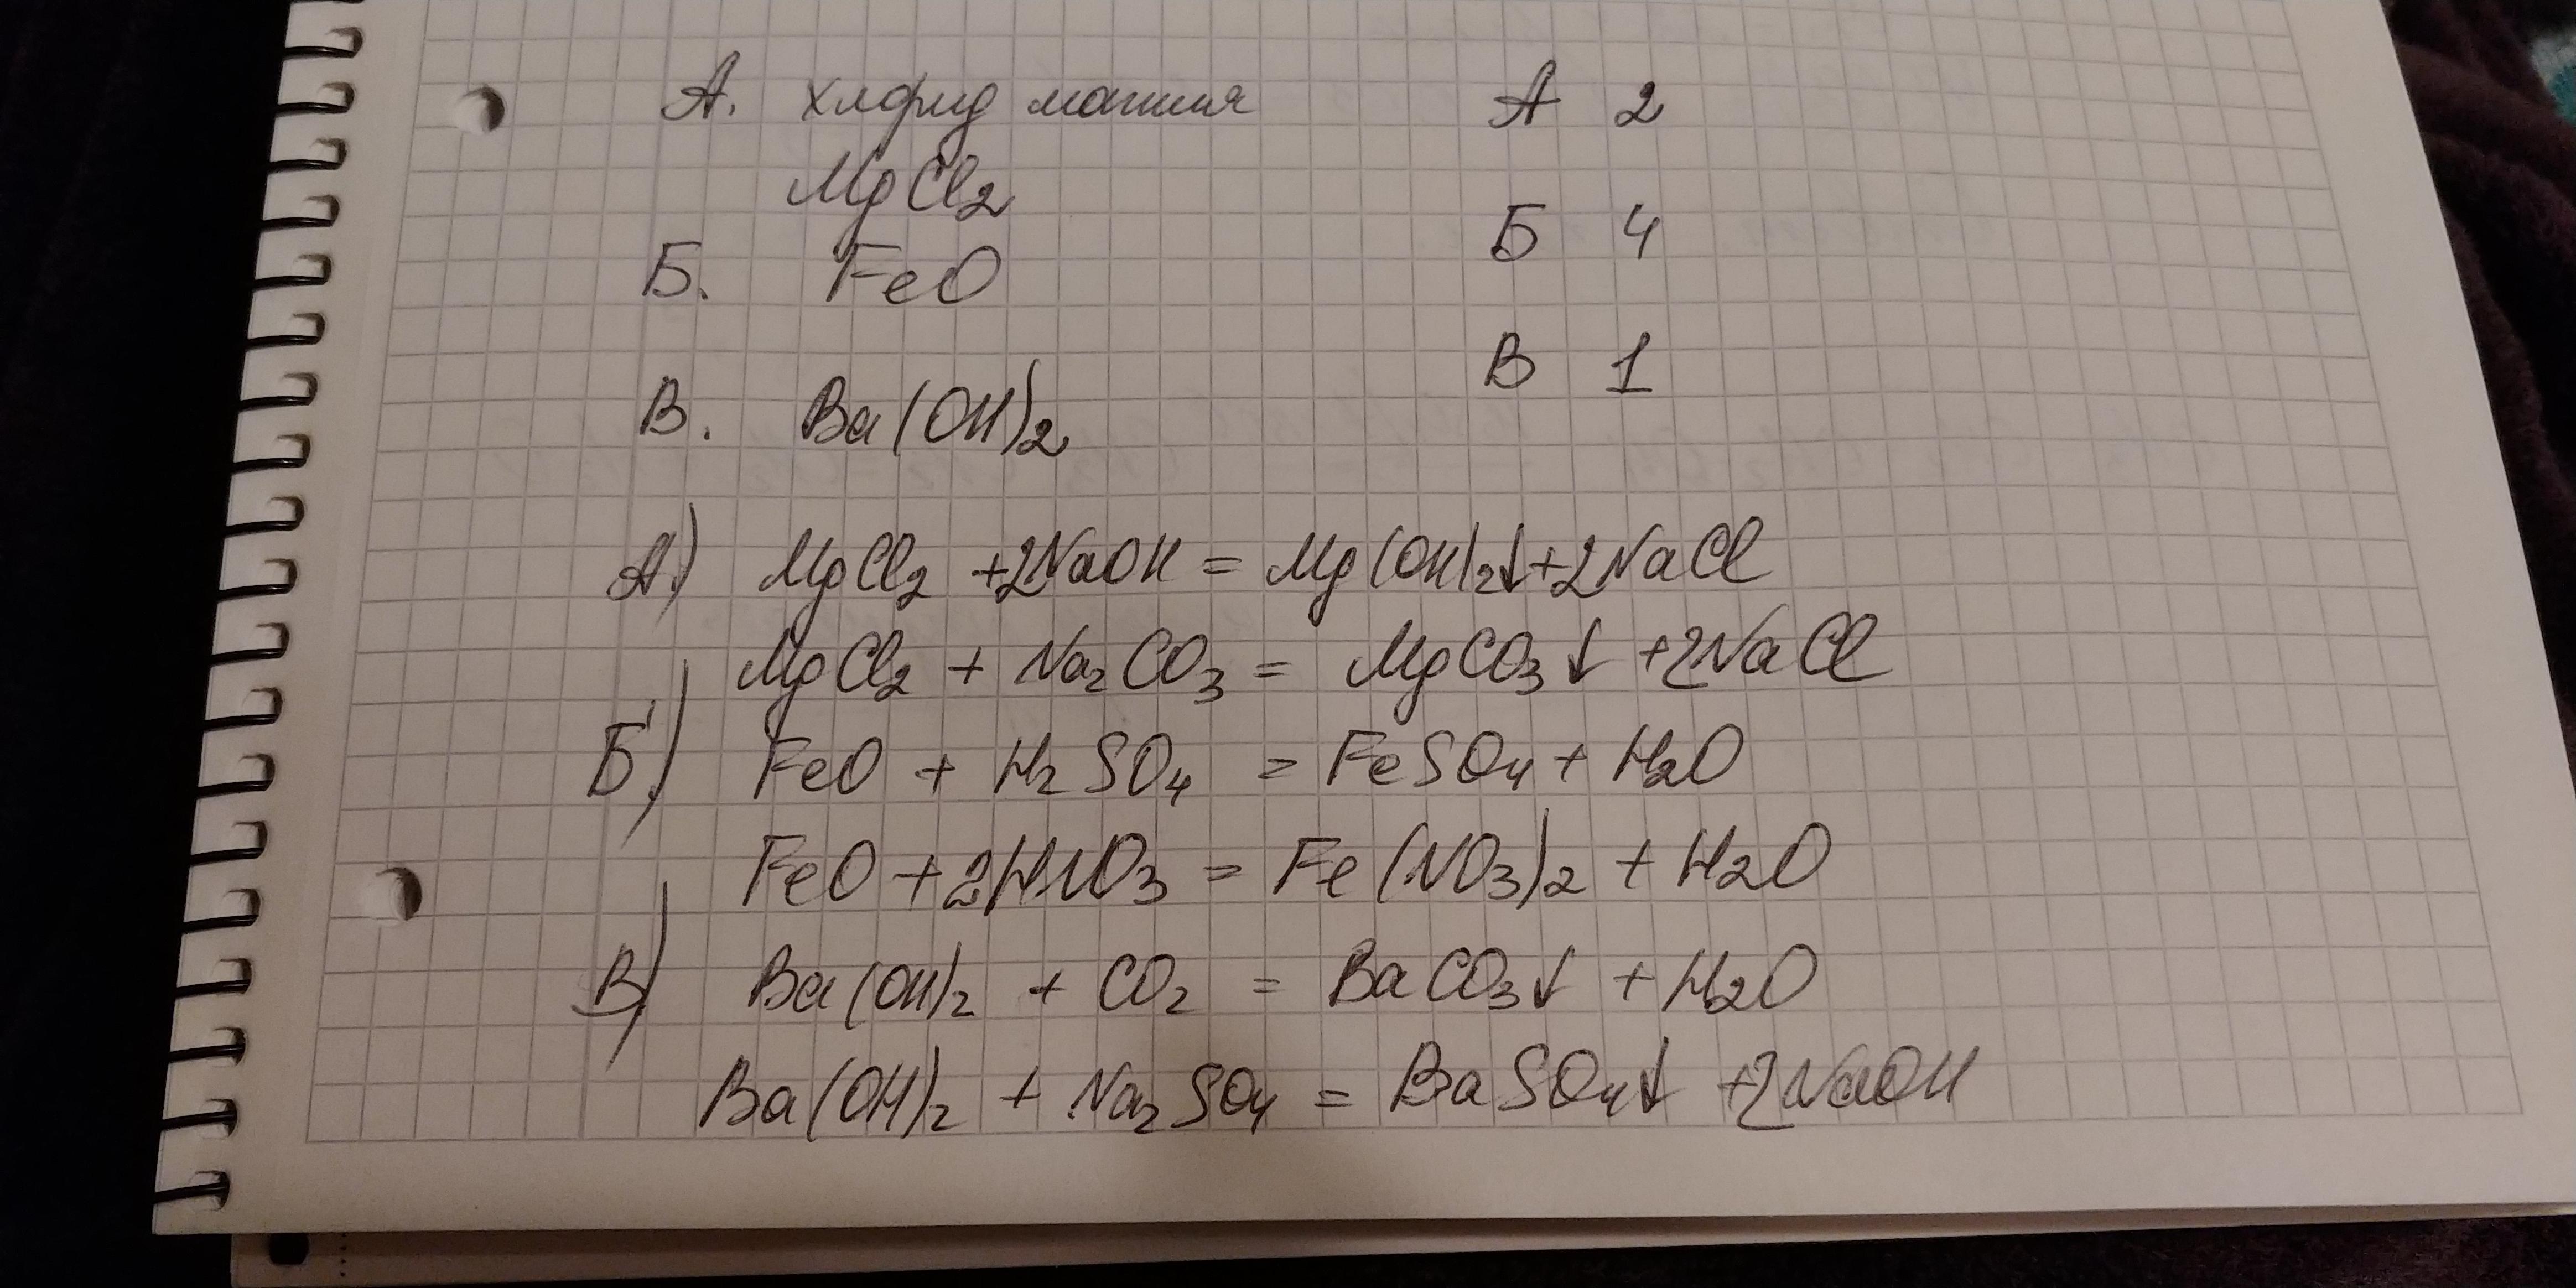 А. хлорид магния
MgCl2
Б. FeO
В. Ba(OH)2
А 2
Б 4
В 1
А) MgCl2 +2NaOH = Mg(OH)2↓+2NaCl
MgCl2 + Na2CO3 = MgCO3↓ +2NaCl
Б) FeO + H2SO4 = FeSO4 + H2O
FeO +2HNO3 = Fe(NO3)2 + H2O
В) Ba(OH)2 + CO2 = BaCO3↓ + H2O
Ba(OH)2 + Na2SO4 = BaSO4↓ +2NaOH